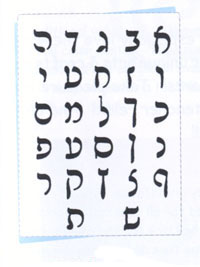 א ב ג ד ה
ו ז ח ט י
כ ך ל מ ם
נ ן ס ע פ
ף צ ץ ק ר
ש ת